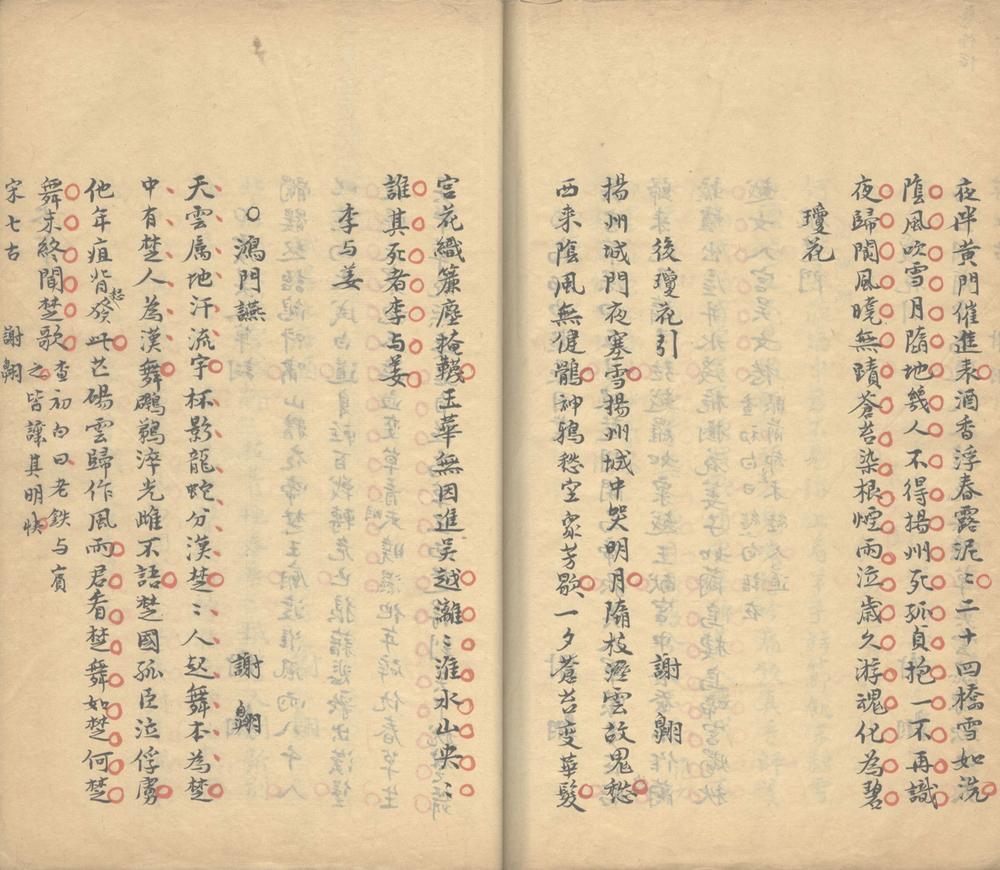 夜半黃門催進表酒香浮春露泥〻二十四橋雪如洗
陰風吹雪月隨地幾人不得揚州死孤貞抱一不再識
夜歸閬風曉無蹟蒼苔染根煙雨泣歲久游魂化為碧
瓊花
後瓊花引 謝翱
揚州城門夜塞雪揚州城中哭明月隋枝溼雲故鬼愁
西來陰風無健鶻神鴉愁空衆芳歇一夕蒼苔變華髮
宮花織簾塵掩韈王華無因進吳越離〻淮水山央〻
誰其死者李与姜
李与姜
○鴻門讌 謝翱
天雲屬地汗流宇杯影龍蛇分漢楚〻人起舞本為楚
中有楚人為漢舞鸊鵜淬光雌不語楚國孤臣泣俘虜
他年疽背怒發此芒碭雲歸作風雨君看楚舞如楚何楚
舞未終聞楚歌 查初白曰老鉄与賓
之皆讓其明快
宋七古 謝翱